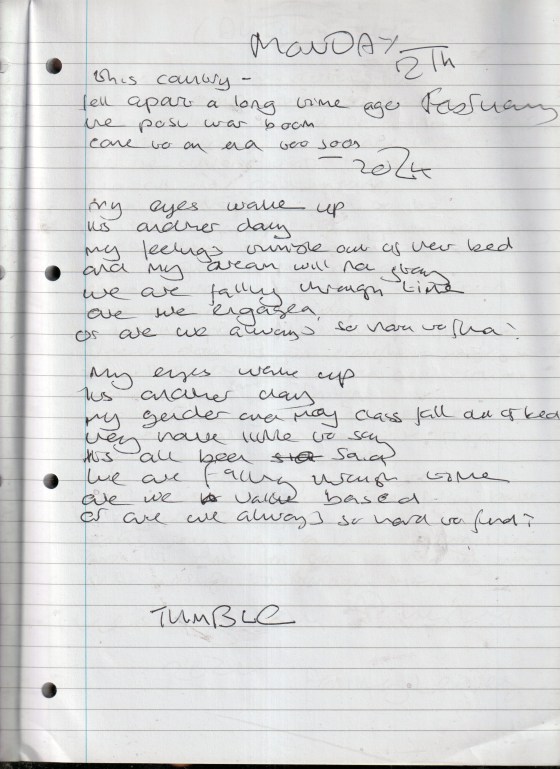 MONDAY
12TH
This country -
fell apart a long time ago February
the post war boom
came to an end too soon
2024
My eyes wake up
It's another day
my feelings tumble out of their bed
and my dream will not stay
we are falling through time
are we engaged
or are we always so hard to find?
My eyes wake up
It's another day
my gender and my class fall out of bed
they have little to say
It's all been said
We are falling through time
are we value based
or are we always so hard to find?
TUMBLE